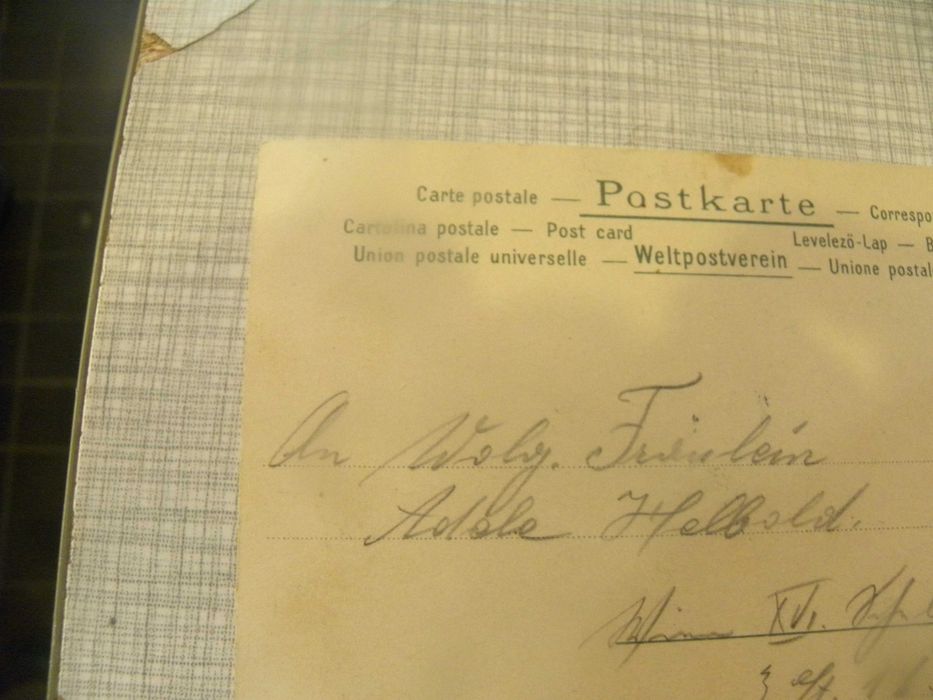 Carte postale — Postkarte — Correspo
Cartolina postale — Post card Levelező-Lap — B
Union postale universelle — Weltpostverein — Unione postal
An Wolg. Fräulein
Adele Helbold.
Wien XVI.